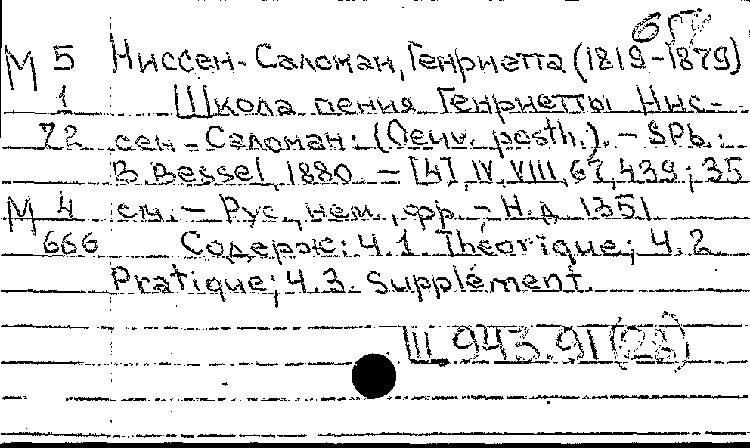 М 5 Ниссен-Саломан, Генриетта (1819-1879)
1 Школа пения Генриетты Нис-
72 сен-Саломан: (Oeuv. posth.). - SPb.:
B. Bessel, 1880. - [4], IV, VIII, 67, 439; 35
М 4 см. - Рус., нем., фр. - Н.д. 1351
666 Содерж: Ч.1. Théorique; Ч.2
Pratique; Ч.3. Supplément.
Ш 943.91(28)